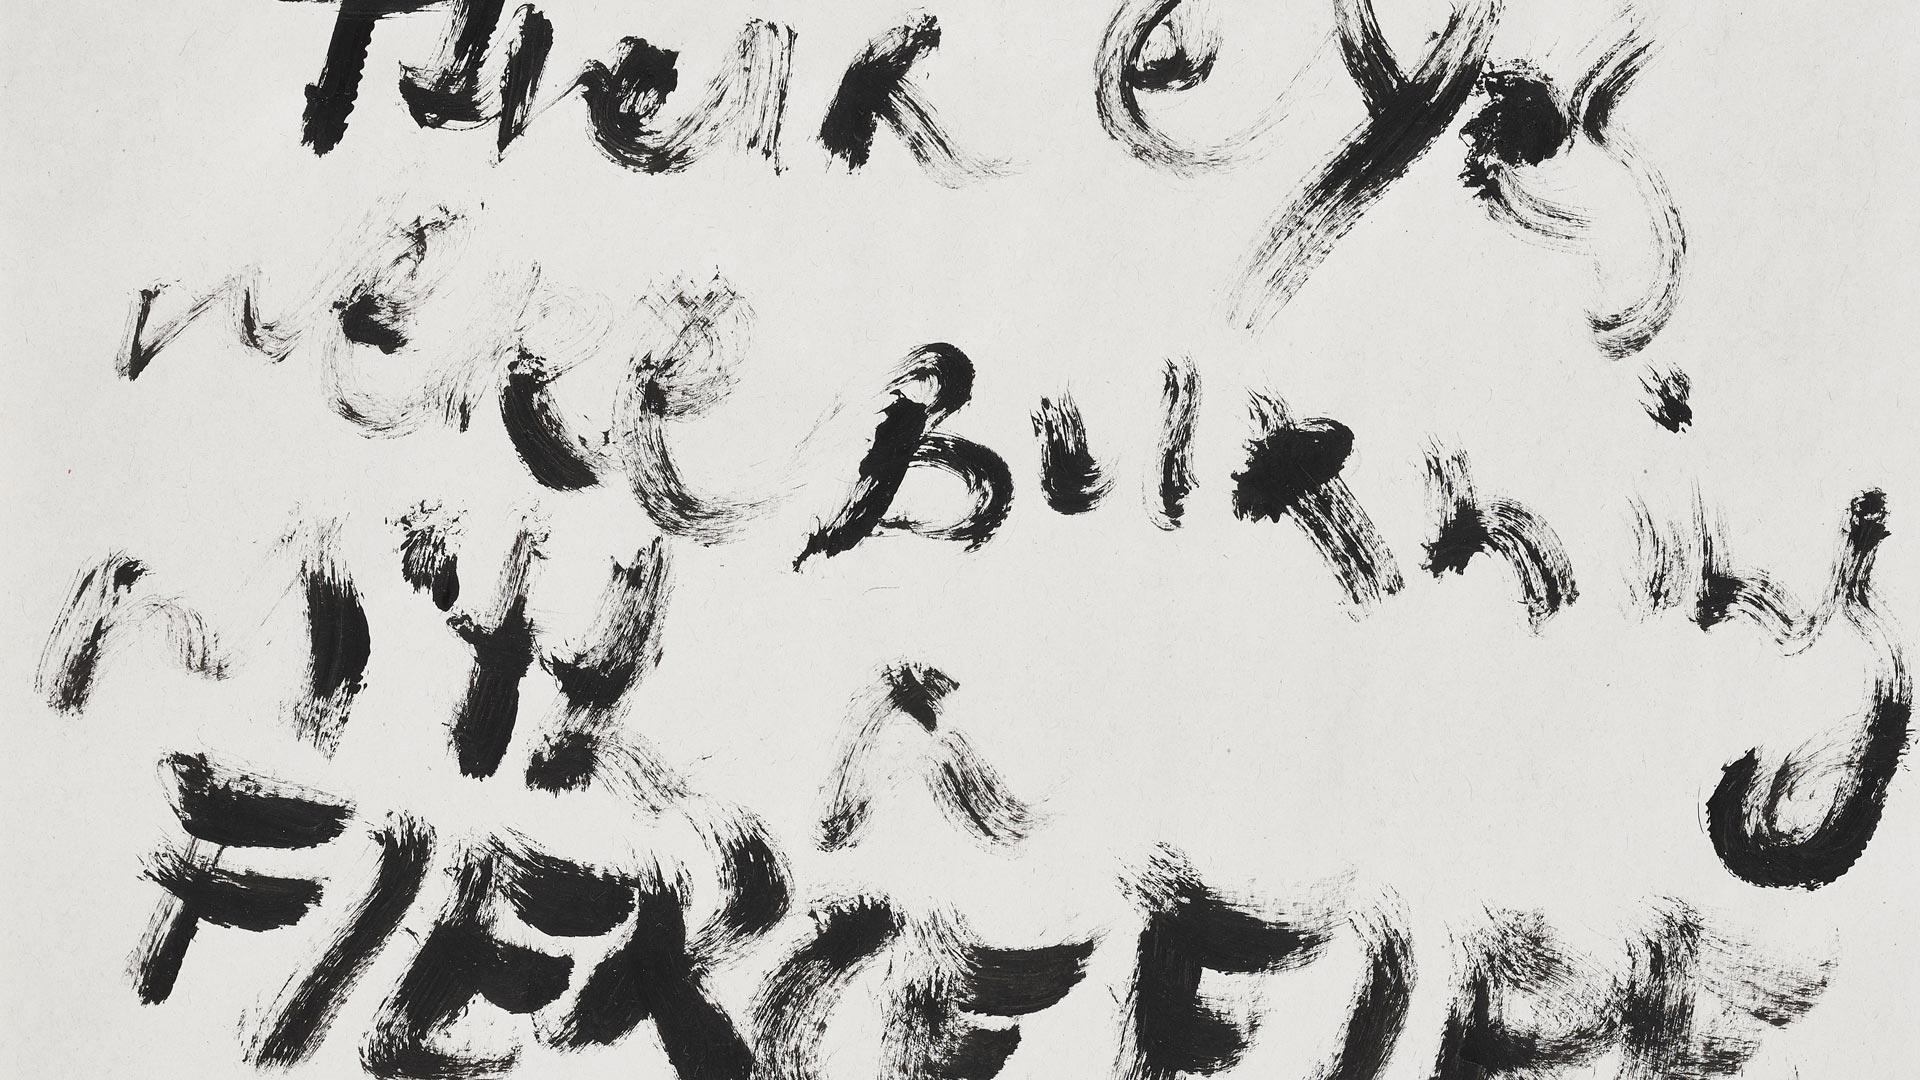 their eyes
were Burning
with A
FIERCE FIRE